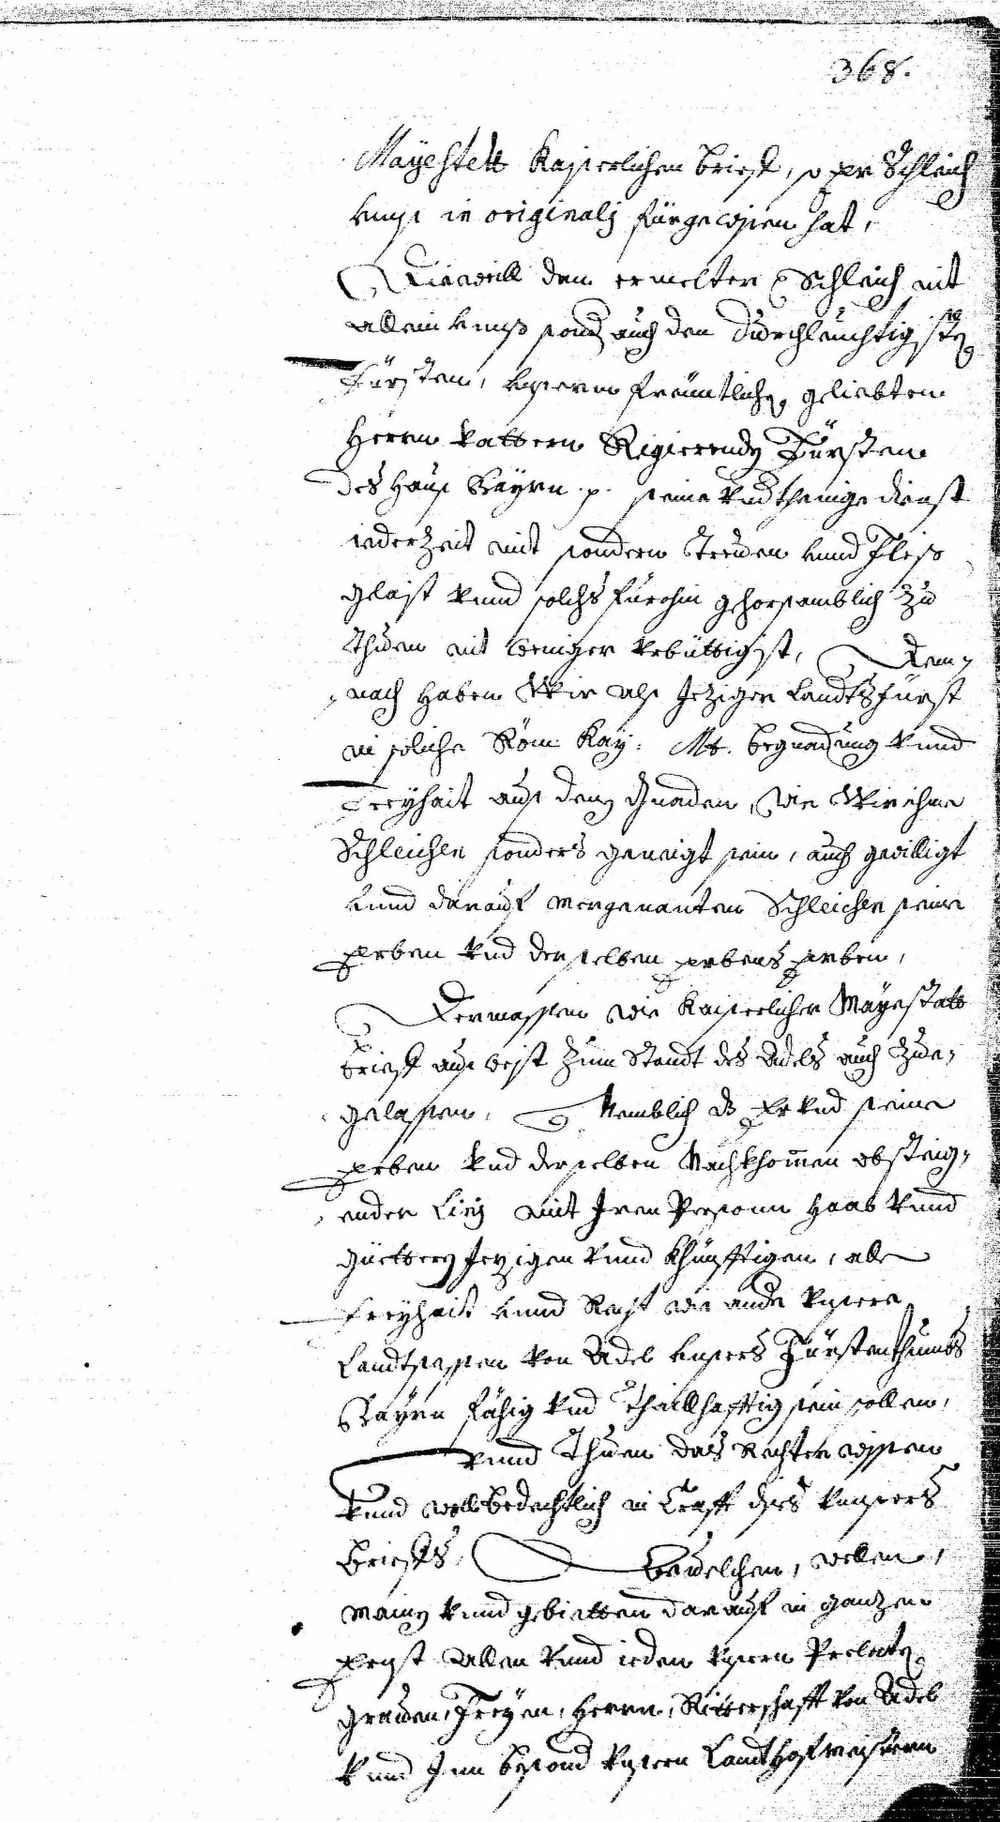 368.
Mayestett Kayserlichen brieff, so er Schleich
unns in originalj fürgewisen hat,
Dieweill dann ermelter Schleich nit
allein unns sonder auch den durchleuchtigisten
Fürsten, unsern freuntlichen geliebten
Herrn Vattern Regierenden Fürsten
des Haus Bayrn p. seine underthenige dienst
iederzeit mit sondern Treuen unnd Fleiß
gelaist unnd solchs fürohin gehorsamblich zu
Thuen nit weniger urbüttig ist, Dem-
nach haben Wir als Jeziger Landtsfürst
in solliche Röm: Kay: Mt. begnadung unnd
Freyhait aus den Gnaden, wie Wir ihme
Schleichen sonders genaigt sein, auch gewilligt
unnd darauf merrgenanten Schleichen seine
Erben und derselben Erbens Erben,
Dermassen wie Kayserlicher Mayestatt
brieff ausweist zum Standt des Adels auch zue-
gelassen, Nemblich das Er und seine
Erben und derselben Nachkhomen absteig-
ender Linj mit Iren Personn Haab unnd
Güettern Jezigen unnd Khünfftigen, aller
Freyhait unnd Recht wie ander unsere
Landtsassen von Adel unsers Fürstenthumbs
Bayrn fähig und Thaillhafftig sein sollen,
unnd Thuen das Rechter wissen
unnd wollbedechtlich in Crafft dis unsers
brieffs, Bevelchen, wellen,
mainen unnd gebietten darauf in ganzen
Ernst Allen unnd ieden unsern Prelaten
Graven, Freyen, Herrn, Ritterschafft von Adel
unnd Inn bsond unsern Landthofmaistern